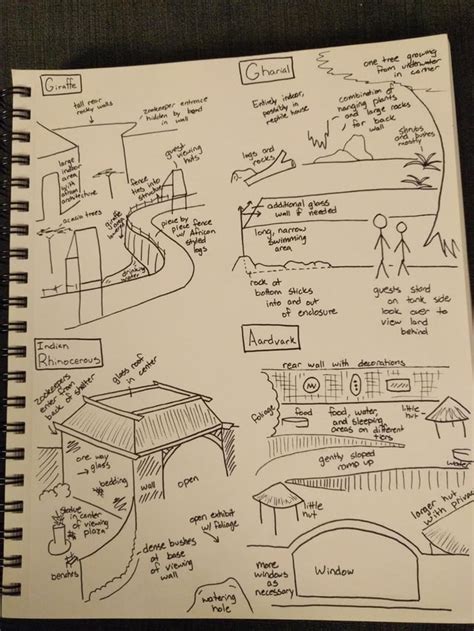 Giraffe
tall rear
rocky walls
zookeeper entrance
hidden by bend
in wall
large
indoor
area
with
african
architecture
guest
viewing
huts
fence
ties into
structure
acacia trees
giraffe
piece by
piece fence
w/ African
styled
logs
drinking
water
Gharial
one tree growing
from underwater
in corner
Entirely indoor,
possibly in
reptile house
combination of
hanging plants
and large rocks
for back
wall
shrubs
and bushes
mostly
logs and
rocks
additional glass
wall if needed
long, narrow
swimming
area
rock at
bottom sticks
into and out
of enclosure
guests stand
on tank side
look over to
view land
behind
Indian
Rhinocerous
glass roof
in center
zookeepers
enter from
back of shelter
one way
glass
bedding
wall
open
statue in
center of
viewing
plaza
benches
open exhibit
w/ foliage
dense bushes
at base
of viewing
wall
watering
hole
Aardvark
rear wall with decorations
foliage
food
food, water,
and sleeping
areas on different
tiers
little
hut
gently sloped
ramp up
water
little
hut
larger hut
with
more
windows as
necessary
Window